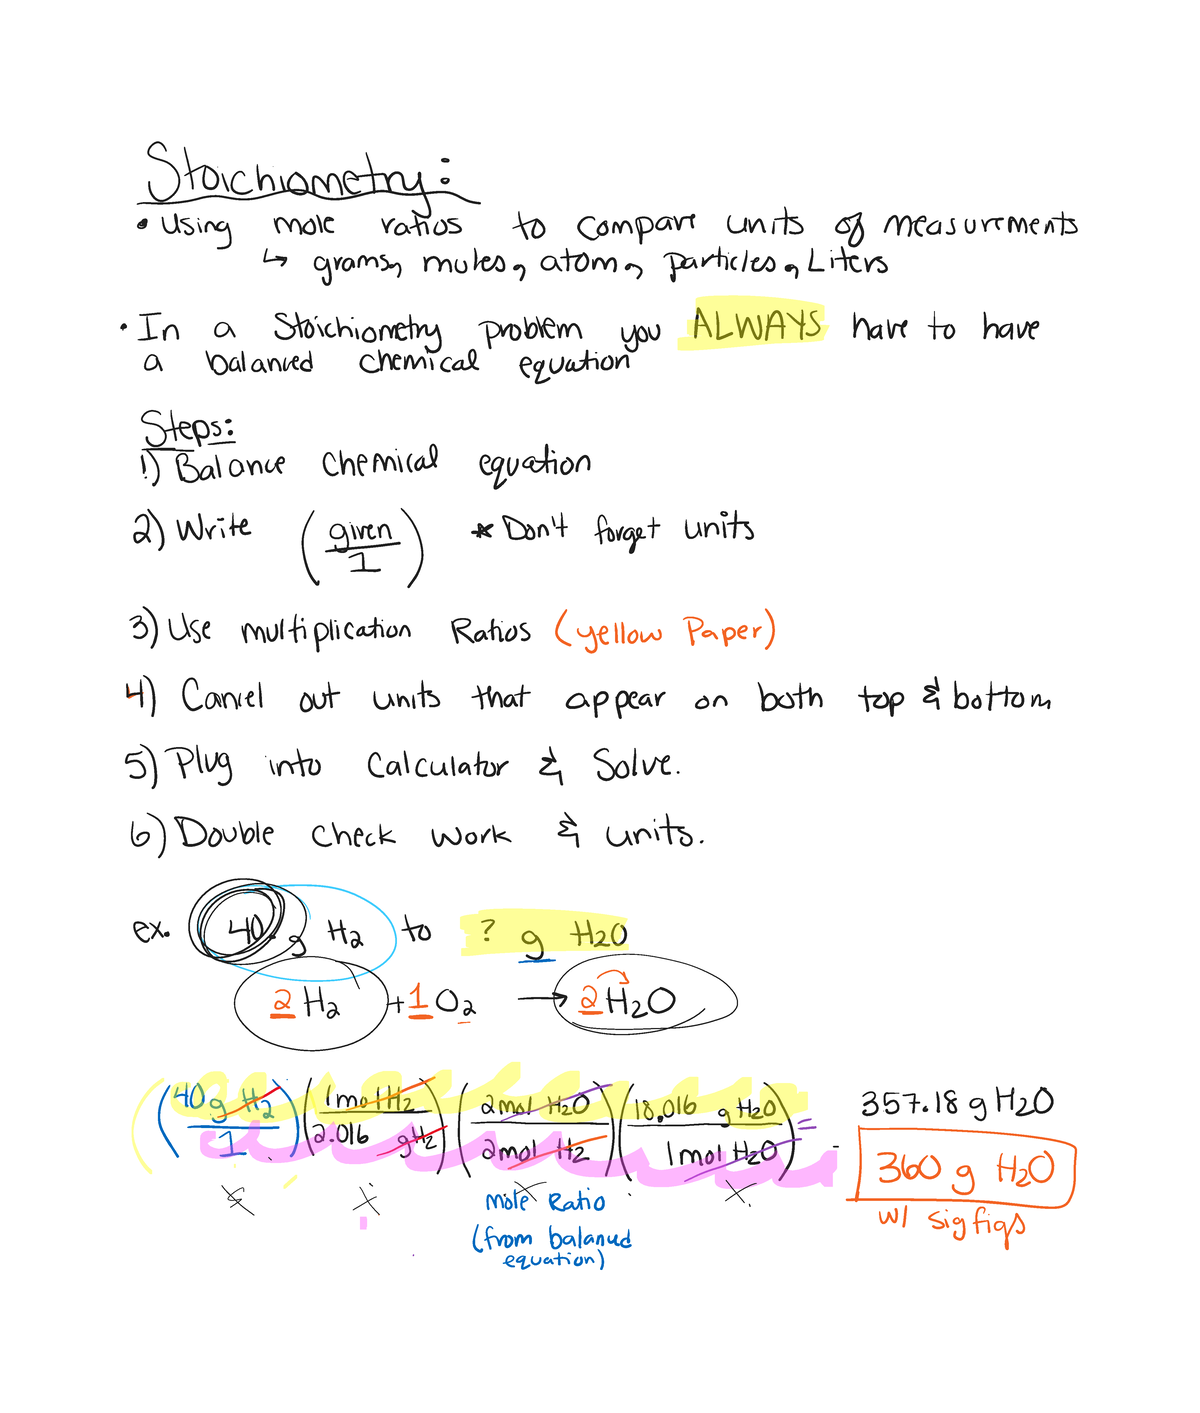 Stoichiometry:
• Using mole ratios to compare units of measurements
↳ grams, moles, atom, particles, Liters
• In a Stoichiometry problem you ALWAYS have to have
a balanced chemical equation
Steps:
1) Balance chemical equation
2) Write (given/1) * Don't forget units
3) Use multiplication Ratios (yellow Paper)
4) Cancel out units that appear on both top & bottom
5) Plug into Calculator & Solve.
6) Double check work & units.
ex. 40. g H₂ to ? g H₂O
2 H₂ + 1 O₂ → 2 H₂O
(40 g H₂/1)(1 mol H₂/2.016 g H₂)(2 mol H₂O/2 mol H₂)(18.016 g H₂O/1 mol H₂O) = 357.18 g H₂O
360 g H₂O
w/ sig figs
Mole Ratio
(from balanced
equation)